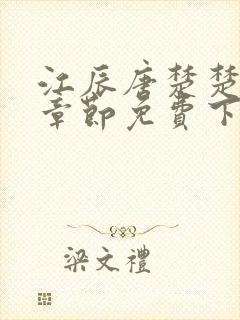 江辰唐楚楚
章節免費下
梁文禮